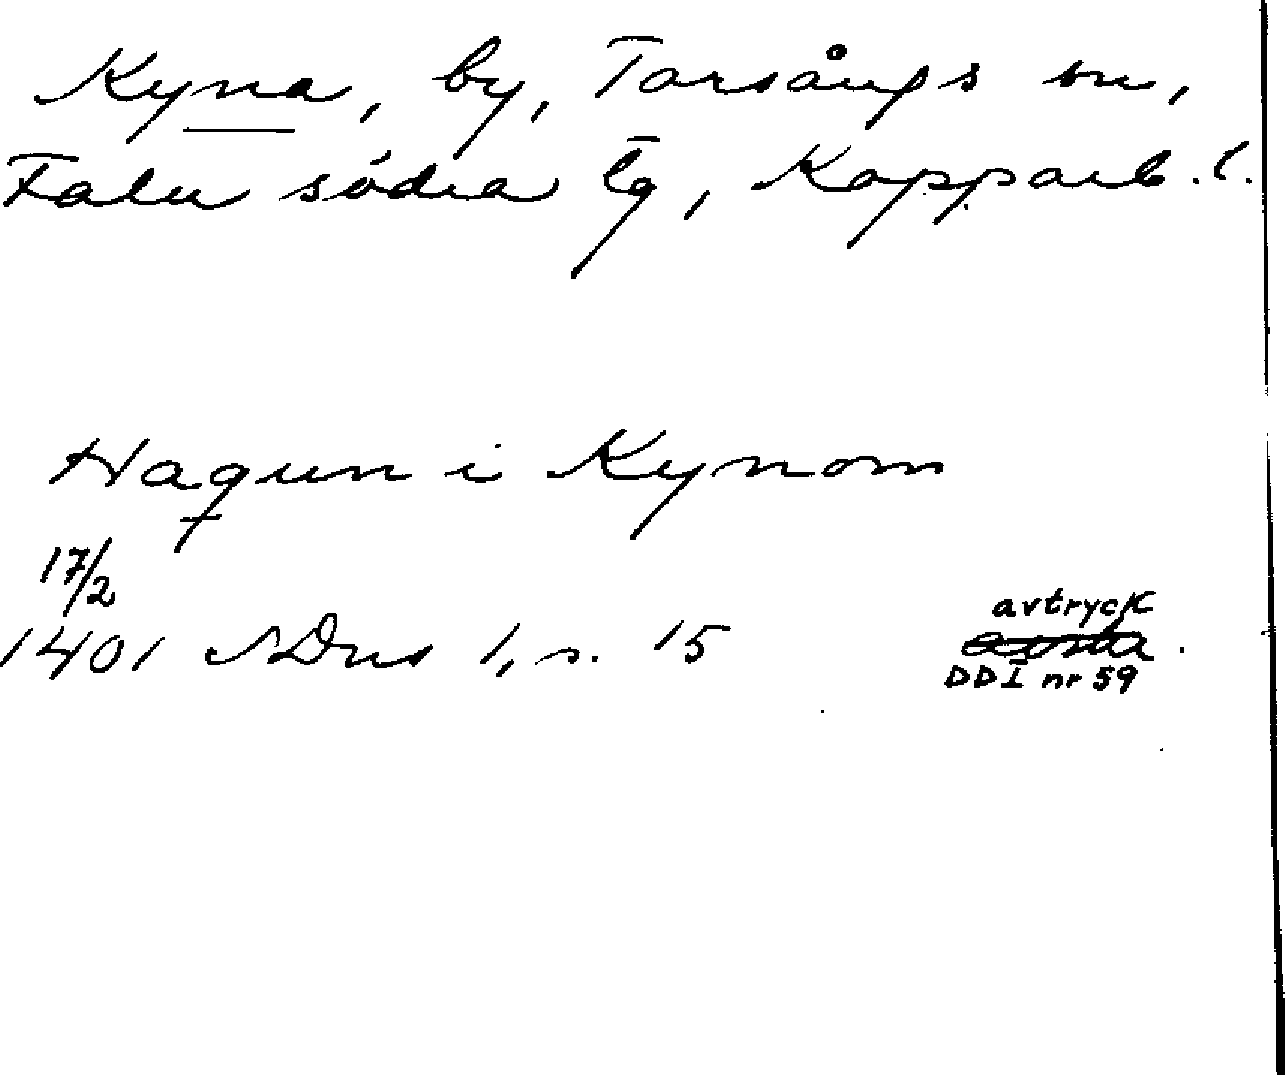 Kyna, by, Torsångs sn,
Falu södra tg, Kopparb. l.
Haqun i Kynom
17/2
1401 NDns 1, s. 15
avtryck
DD I nr 59